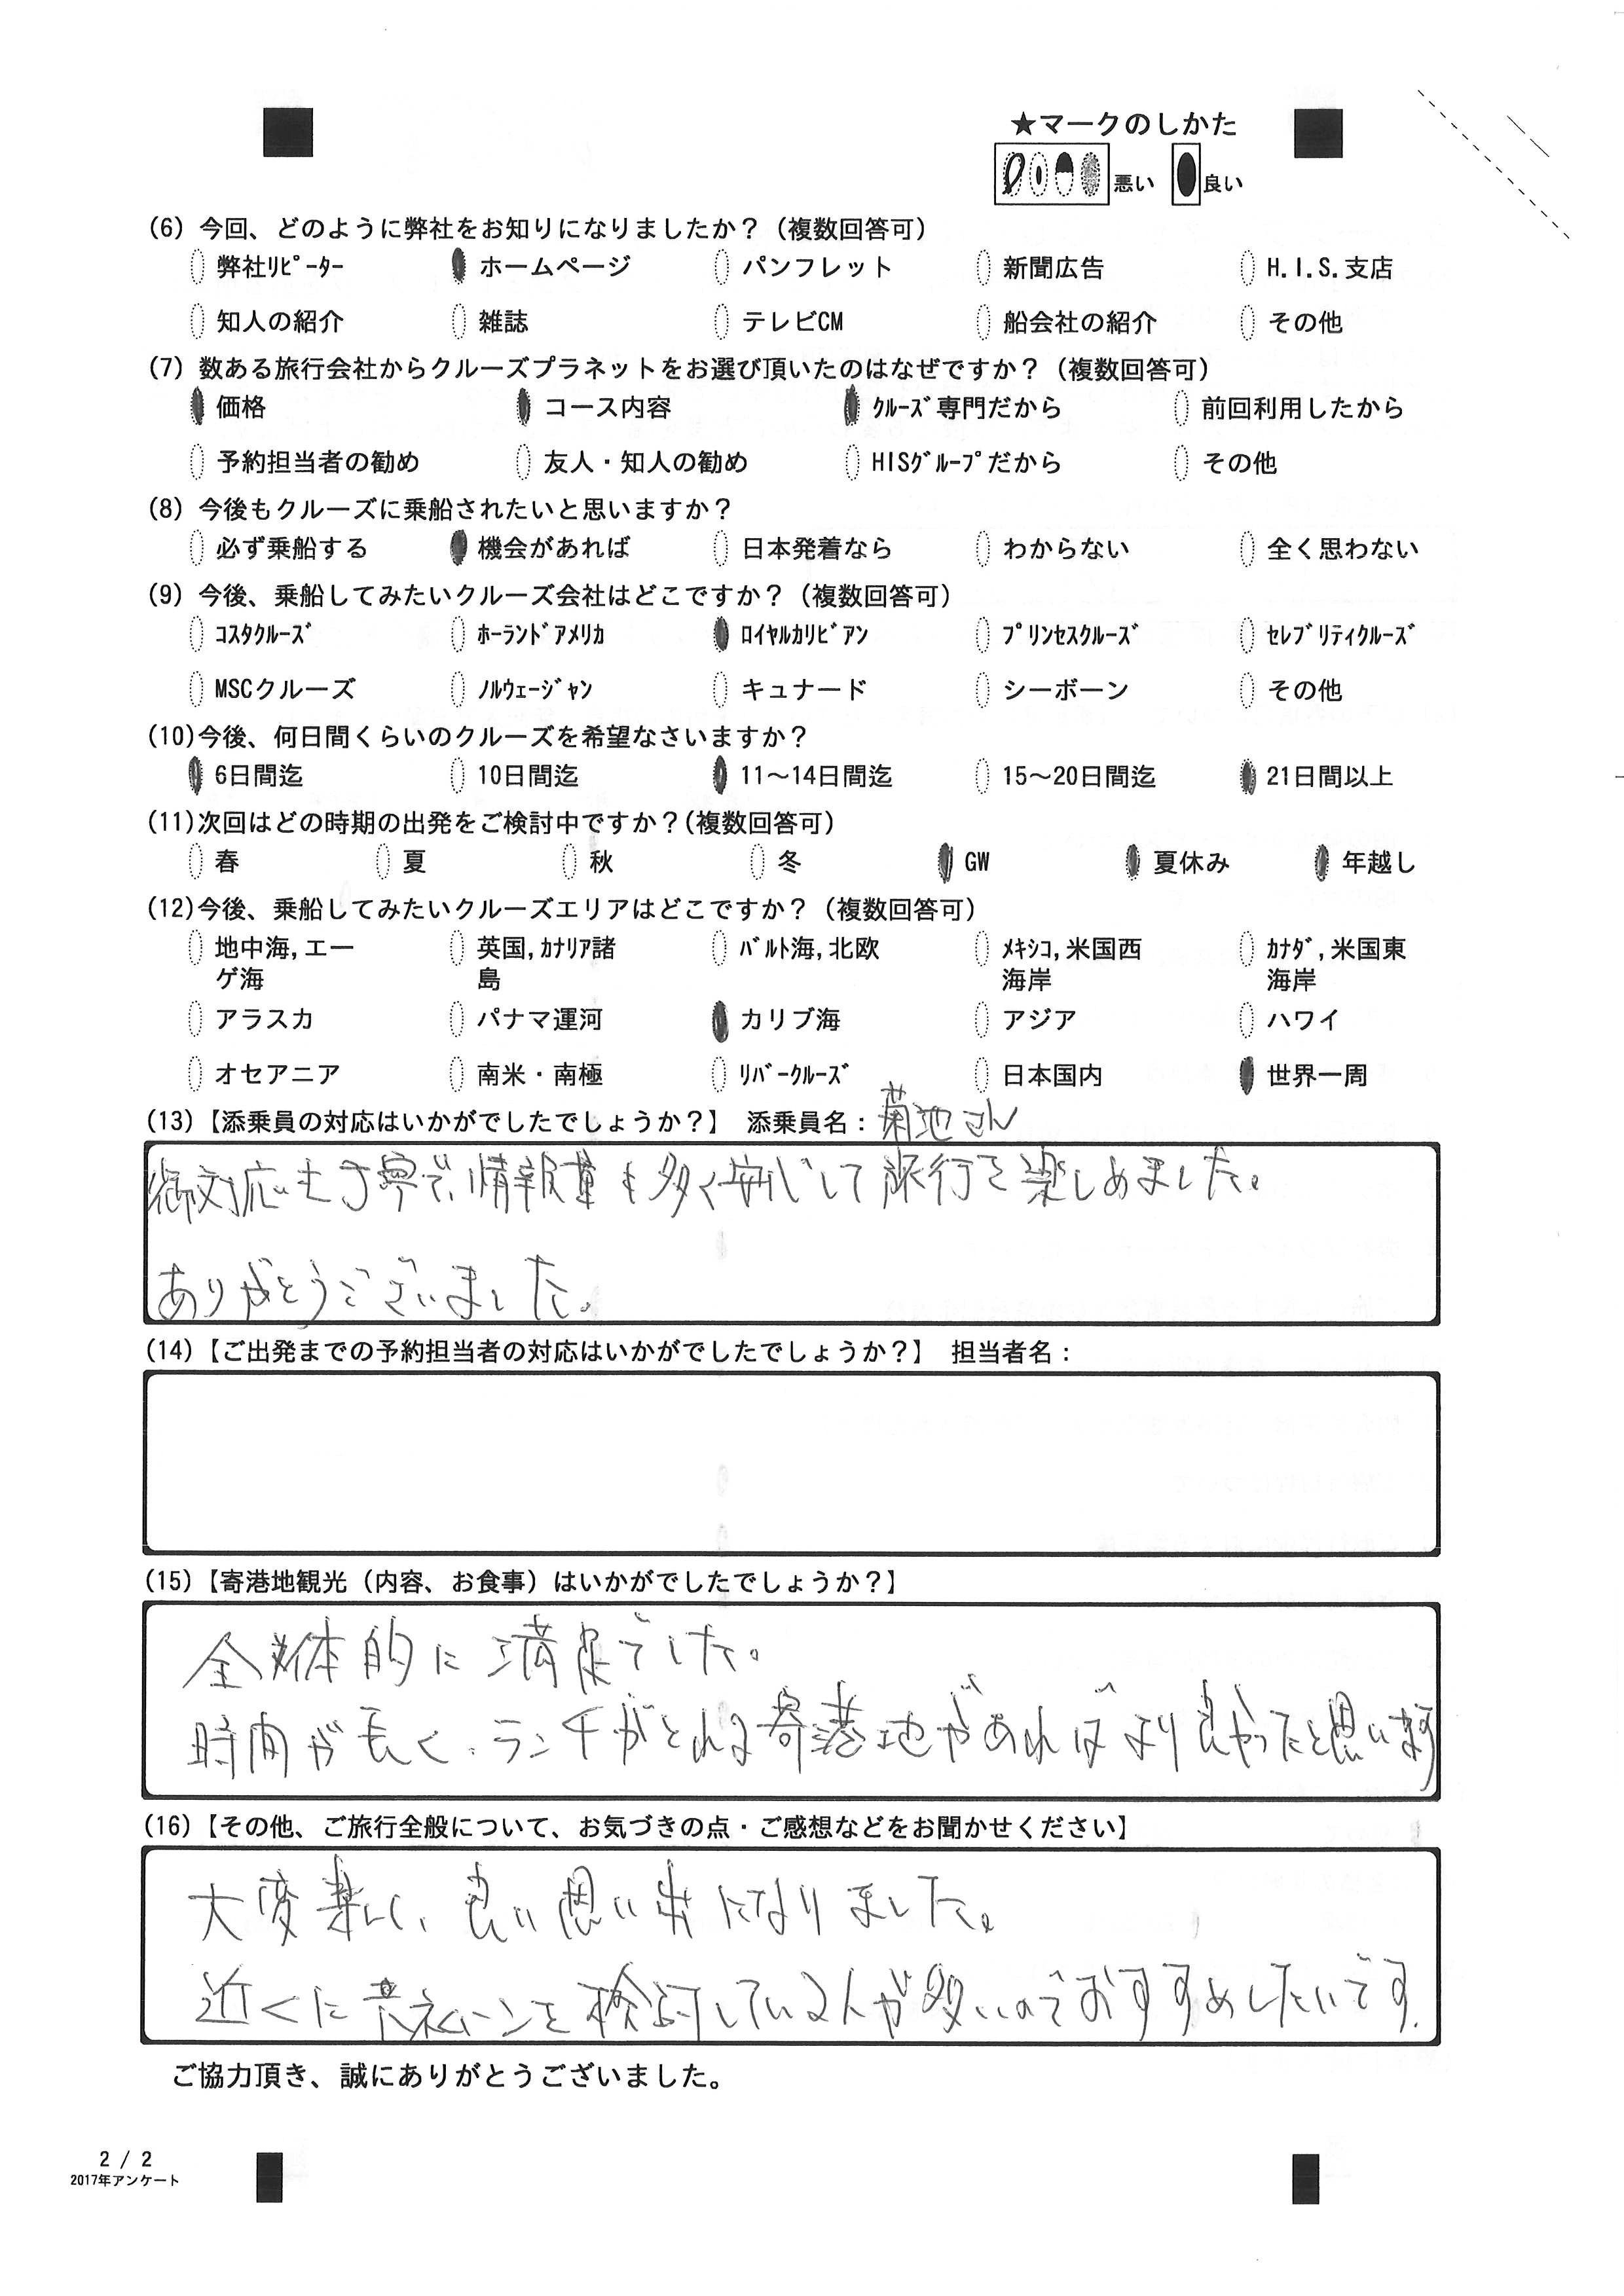 ★マークのしかた
悪い 良い
(6) 今回、どのように弊社をお知りになりましたか？（複数回答可）
弊社ﾘﾋﾟｰﾀｰ ホームページ パンフレット 新聞広告 H.I.S.支店
知人の紹介 雑誌 テレビCM 船会社の紹介 その他
(7) 数ある旅行会社からクルーズプラネットをお選び頂いたのはなぜですか？（複数回答可）
価格 コース内容 ｸﾙｰｽﾞ専門だから 前回利用したから
予約担当者の勧め 友人・知人の勧め HISｸﾞﾙｰﾌﾟだから その他
(8) 今後もクルーズに乗船されたいと思いますか？
必ず乗船する 機会があれば 日本発着なら わからない 全く思わない
(9) 今後、乗船してみたいクルーズ会社はどこですか？（複数回答可）
ｺｽﾀｸﾙｰｽﾞ ﾎｰﾗﾝﾄﾞｱﾒﾘｶ ﾛｲﾔﾙｶﾘﾋﾞｱﾝ ﾌﾟﾘﾝｾｽｸﾙｰｽﾞ ｾﾚﾌﾞﾘﾃｨｸﾙｰｽﾞ
MSCクルーズ ﾉﾙｳｪｰｼﾞｬﾝ キュナード シーボーン その他
(10)今後、何日間くらいのクルーズを希望なさいますか？
6日間迄 10日間迄 11～14日間迄 15～20日間迄 21日間以上
(11)次回はどの時期の出発をご検討中ですか？(複数回答可）
春 夏 秋 冬 GW 夏休み 年越し
(12)今後、乗船してみたいクルーズエリアはどこですか？（複数回答可）
地中海,エー 英国,ｶﾅﾘｱ諸 ﾊﾞﾙﾄ海,北欧 ﾒｷｼｺ,米国西 ｶﾅﾀﾞ,米国東
ゲ海 島 海岸 海岸
アラスカ パナマ運河 カリブ海 アジア ハワイ
オセアニア 南米・南極 ﾘﾊﾞｰｸﾙｰｽﾞ 日本国内 世界一周
(13)【添乗員の対応はいかがでしたでしょうか？】 添乗員名：菊池さん
御対応も丁寧で、情報量も多く安心して旅行を楽しめました。
ありがとうございました。
(14)【ご出発までの予約担当者の対応はいかがでしたでしょうか？】 担当者名：
(15)【寄港地観光（内容、お食事）はいかがでしたでしょうか？】
全体的に満足でした。
時間が長く、ランチがとれる寄港地があればより良かったと思います
(16)【その他、ご旅行全般について、お気づきの点・ご感想などをお聞かせください】
大変楽しく、良い思い出になりました。
近くに を検討している人が多いのでおすすめしたいです.
ご協力頂き、誠にありがとうございました。
2 / 2
2017年アンケート